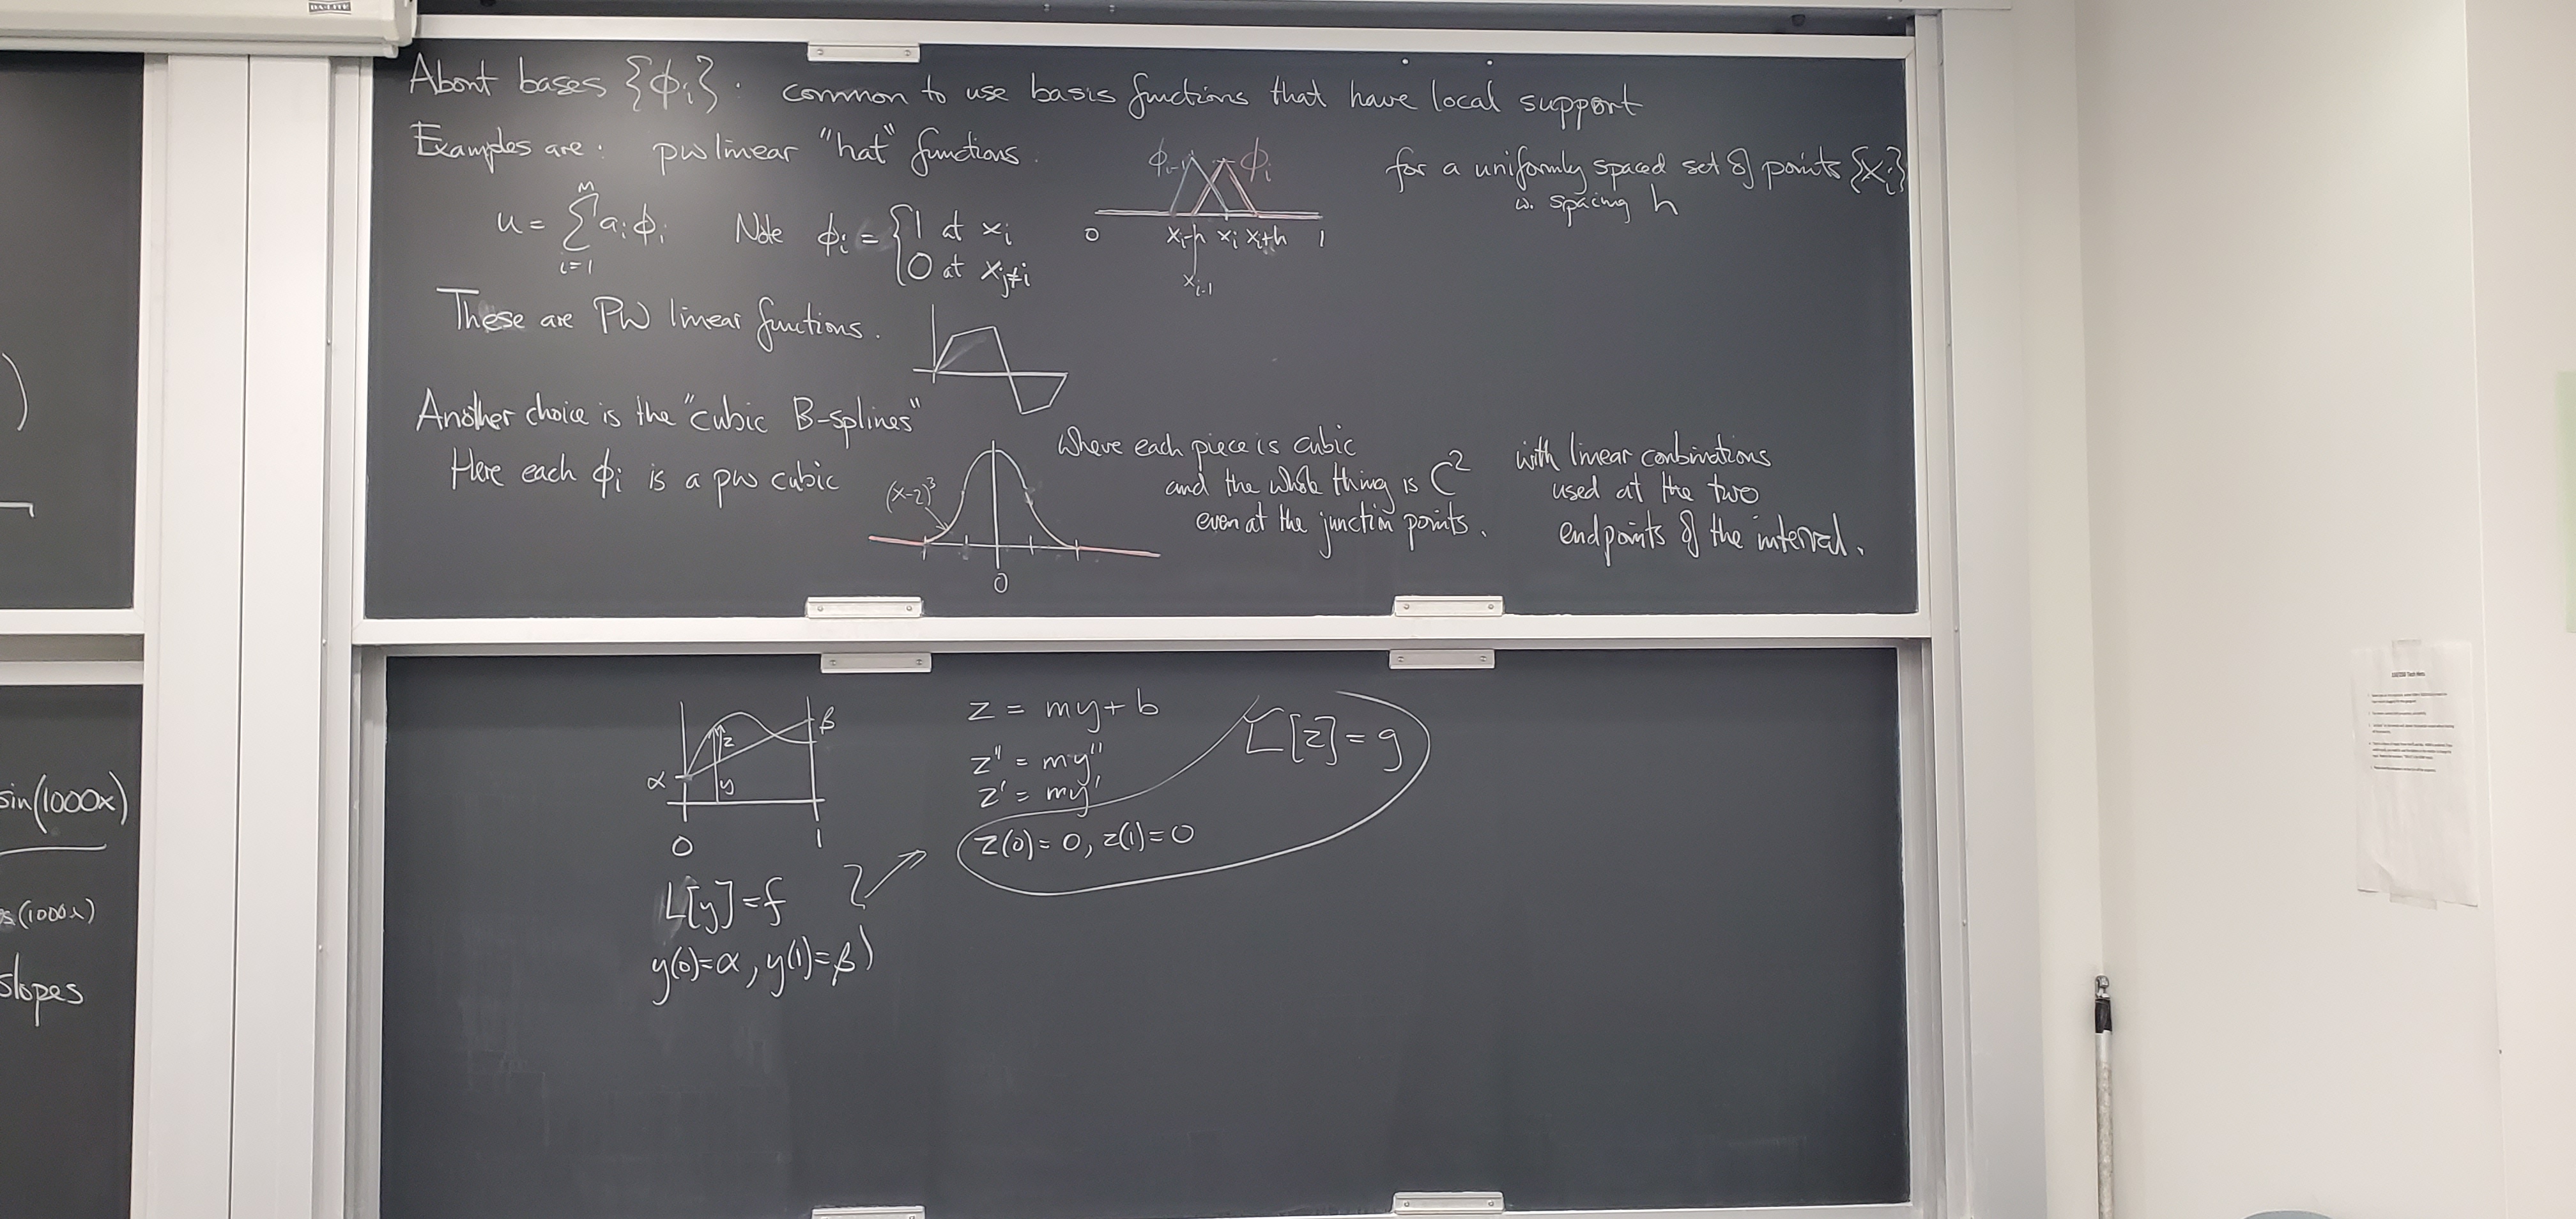 About bases {ϕi}: common to use basis functions that have local support
Examples are: pw linear "hat" functions.
ϕi-1 ϕi
0 xi-h xi xi+h 1
xi-1
for a uniformly spaced set of points {xi}
w. spacing h
u = Σ_{i=1}^{M} ai ϕi Note ϕi = { 1 at xi
0 at xj≠i
These are PW linear functions.
Another choice is the "cubic B-splines"
Here each ϕi is a pw cubic
(x-2)³
0
where each piece is cubic
and the whole thing is C²
even at the junction points.
with linear combinations
used at the two
endpoints of the interval.
α z y β
0 1
L[y]=f
y(0)=α, y(1)=β
z = my+b
z'' = my''
z' = my'
z(0)=0, z(1)=0
L[z]=g
sin(1000x)
s(1000x)
slopes